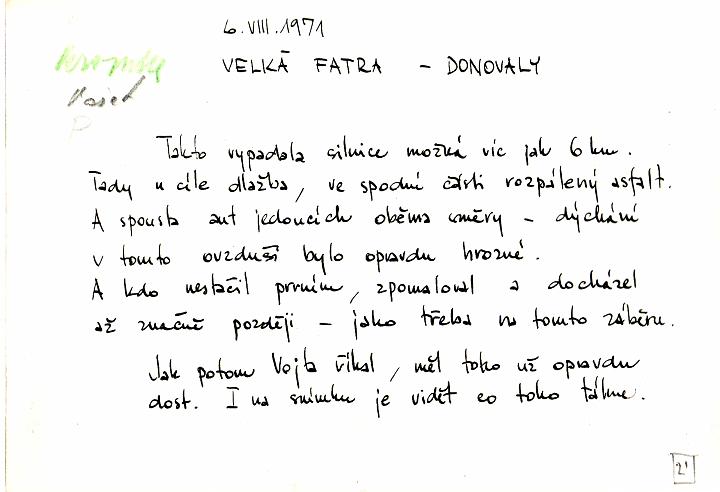 6. VIII. 1971
VELKÁ FATRA – DONOVALY
Kronika
Vašek
P
Takto vypadala silnice možká víc jak 6 km.
Tady u cíle dlažba, ve spodní části rozpálený asfalt.
A spousta aut jedoucích oběma směry – dýchání
v tomto ovzduší bylo opravdu hrozné.
A kdo nestačil prvním, zpomaloval a docházel
až značně později – jako třeba na tomto záběru.
Jak potom Vojta říkal, měl toho už opravdu
dost. I na snímku je vidět co toho táhne.
21